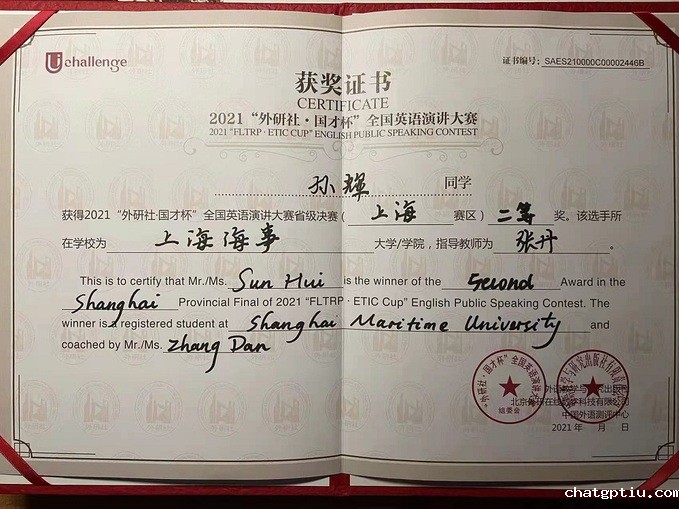 Uchallenge
证书编号：SAES210000C00002446B
获奖证书
CERTIFICATE
2021 “外研社·国才杯” 全国英语演讲大赛
2021 "FLTRP · ETIC CUP" ENGLISH PUBLIC SPEAKING CONTEST
孙辉 同学
获得2021 “外研社·国才杯” 全国英语演讲大赛省级决赛（ 上海 赛区）二等 奖。该选手所
在学校为 上海海事 大学/学院，指导教师为 张丹 。
This is to certify that Mr./Ms. Sun Hui is the winner of the Second Award in the
Shanghai Provincial Final of 2021 "FLTRP · ETIC Cup" English Public Speaking Contest. The
winner is a registered student at Shanghai Maritime University and
coached by Mr./Ms. Zhang Dan
“外研社·国才杯”全国英语演讲大赛
组委会
外语教学与研究出版社
北京外研在线数字科技有限公司
中国外语测评中心
2021 年 月 日
chatgptiu.com